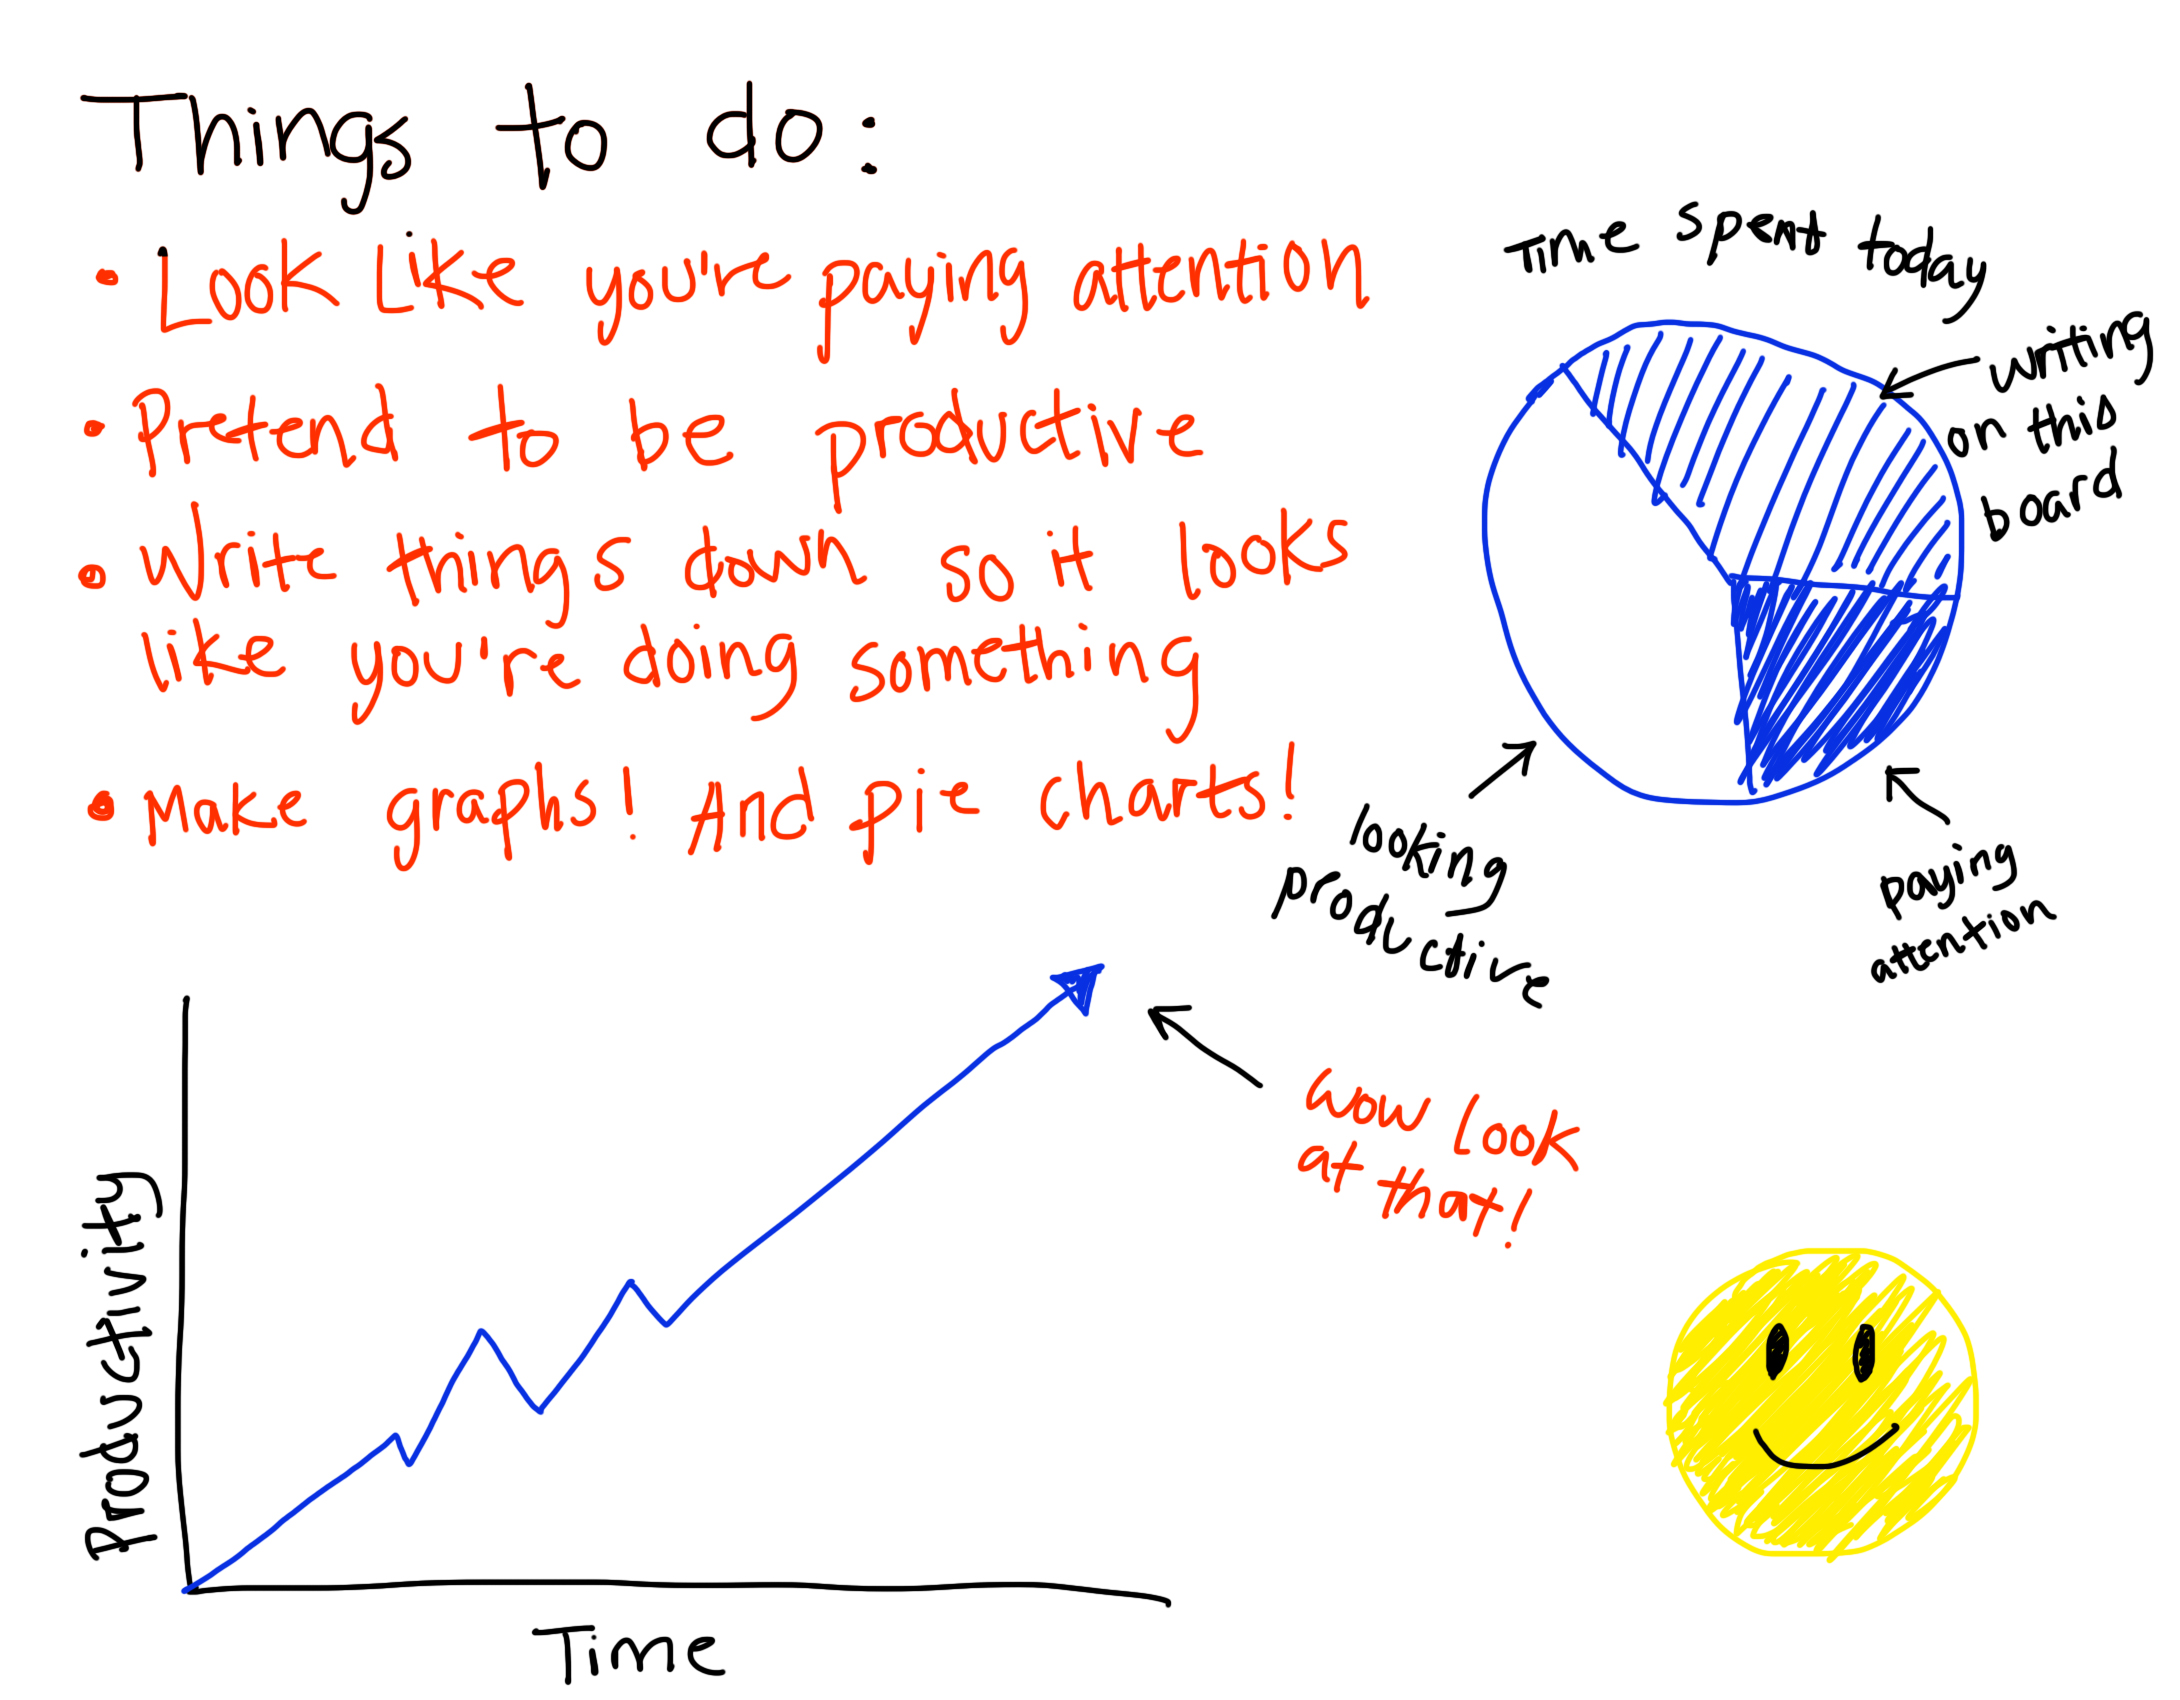 Things to do:
• Look like you're paying attention
• Pretend to be productive
• Write things down so it looks
like you're doing something
• Make graphs! And pie charts!
Time spent today
writing
on this
board
looking
productive
paying
attention
wow look
at that!
Productivity
Time